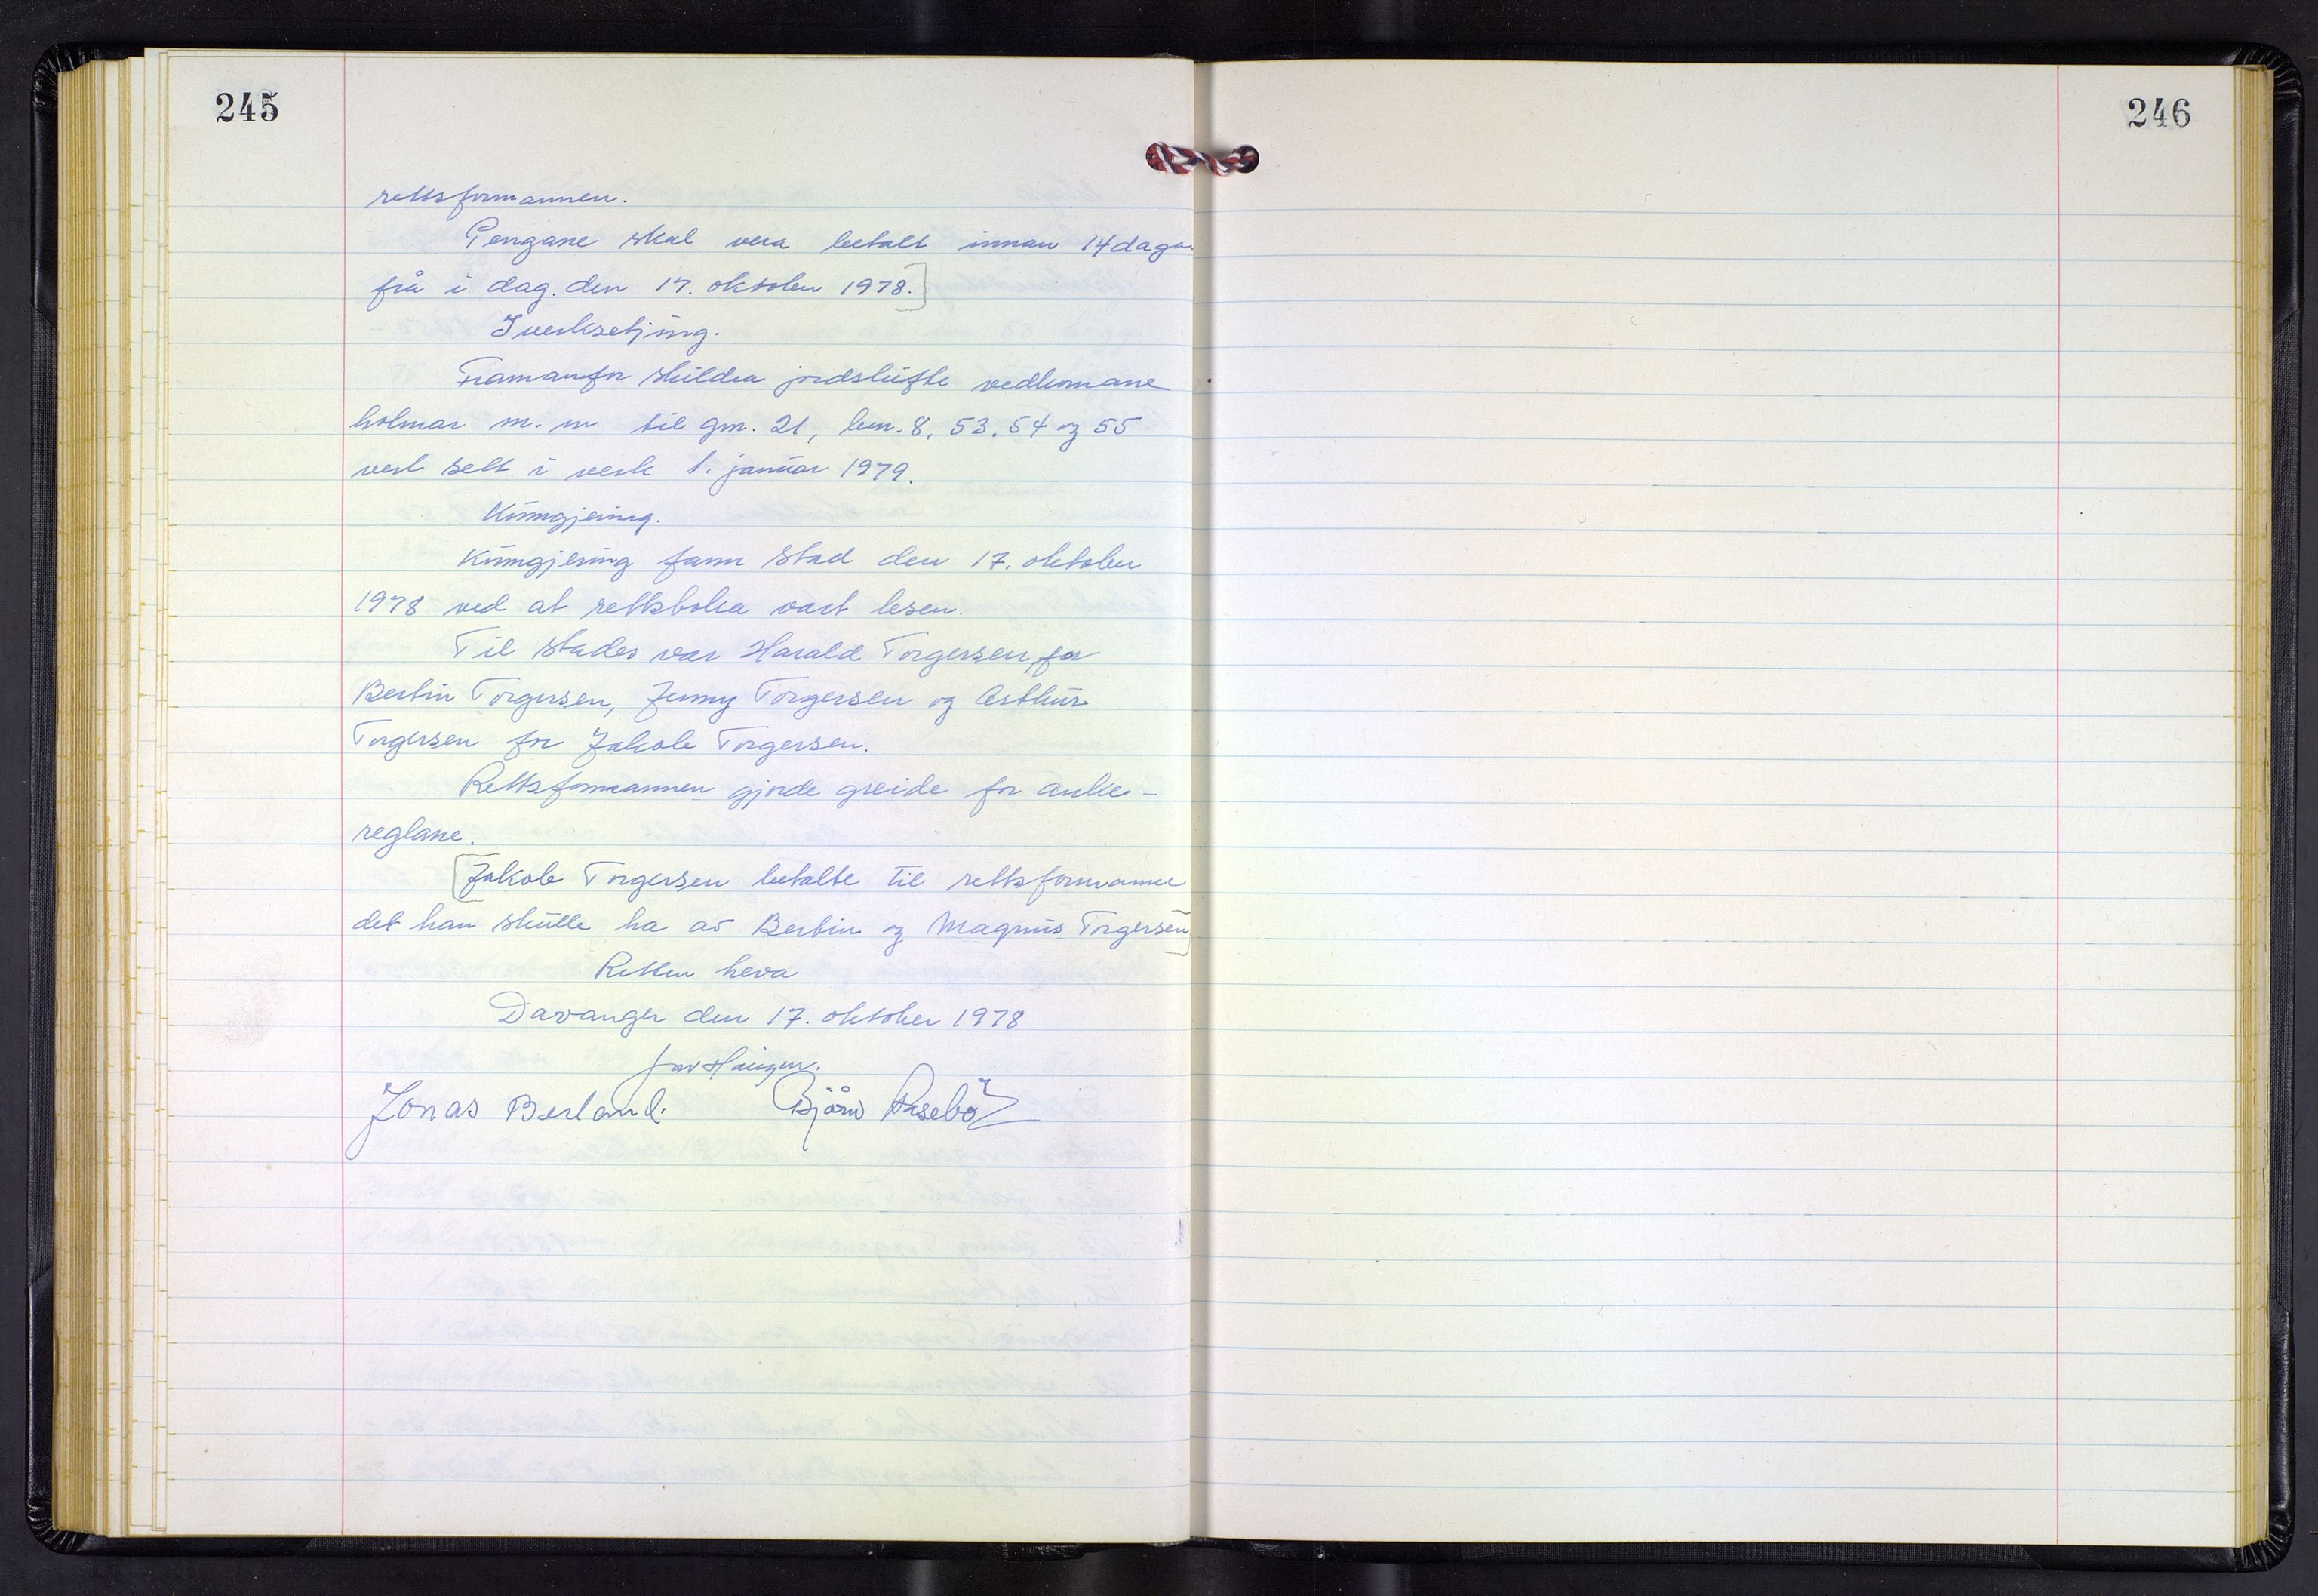 245
rettsformannen.
Pengane skal vera betalt innan 14 dagar
frå i dag. den 17. oktober 1978.]
Iverksetjing.
Framanfor skildra jordskifte vedkomane
holmar m. m til gnr. 21, bnr. 8, 53. 54 og 55
vert sett i verk 1. januar 1979.
Kunngjering.
Kunngjering fann stad den 17. oktober
1978 ved at rettsboka vart lesen.
Til stades var Harald Torgersen, for
Bertin Torgersen, Jenny Torgersen og Arthur
Torgersen for Jakob Torgersen.
Rettsformannen gjorde greide for anke-
reglane.
[Jakob Torgersen betalte til rettsformannen
det han skulle ha av Bertin og Magnus Torgersen]
Retten heva
Davanger den 17. oktober 1978
Jonas Berland. Bjørn
246